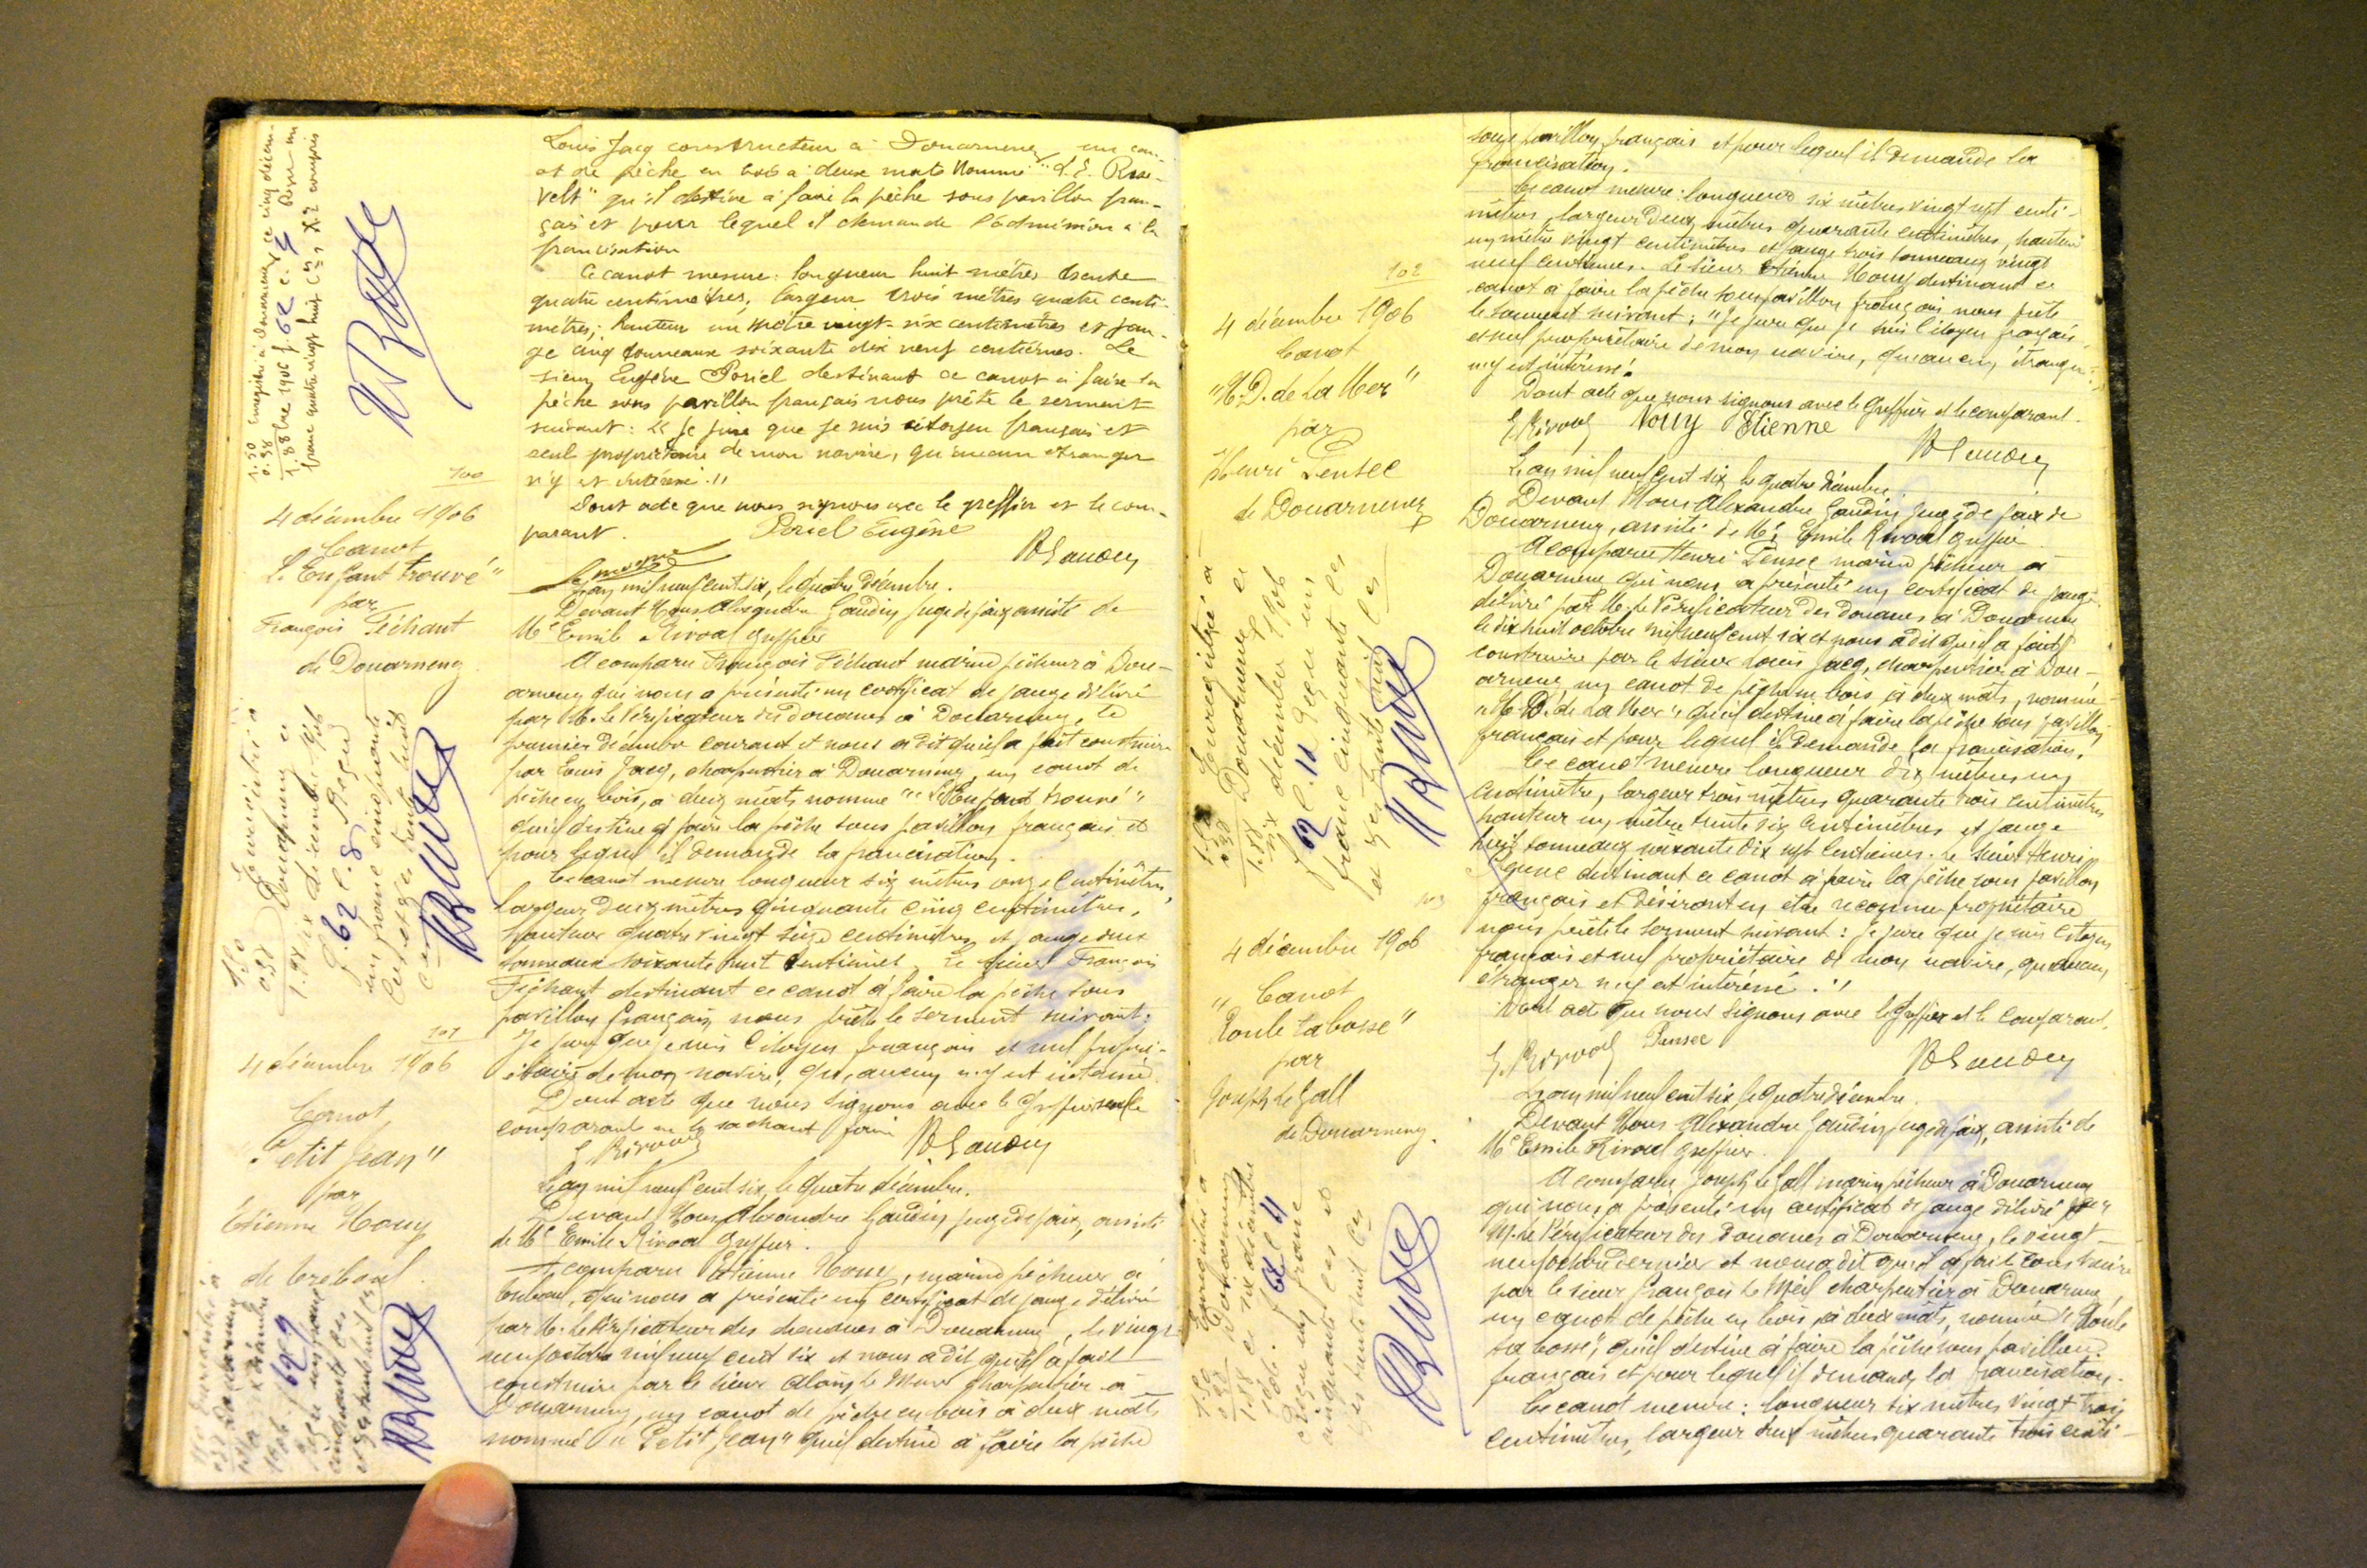 Louis Jacq constructeur à Douarnenez un can-
ot de pêche en bois à deux mats nommé
velt" qu'il destine à faire la pêche sous pavillon fran-
çais et pour lequel il demande l'admission à la
francisation
Ce canot mesure: longueur huit mètres trente
quatre centimètres, largeur trois mètres quatre centi-
mètres; hauteur un mètre vingt-six centimètres et jau-
ge cinq tonneaux soixante dix neuf centièmes. Le
sieur Eugène Poriel destinant ce canot à faire la
pêche sous pavillon français nous prête le serment
suivant: "Je jure que je suis citoyen français et
seul propriétaire de mon navire, qu'aucun étranger
n'y est intéressé."
Dont acte que nous signons avec le greffier et le com-
parant.
Poriel Eugène
1.50
0.38
1.88
Enregistré à Douarnenez ce cinq décem-
bre 1906 f. 62 c. 7 Reçu un
franc quatre vingt huit cmes Xes compris
100
4 décembre 1906
Canot
"L'Enfant trouvé"
par
François Féchant
de Douarnenez
L'an mil neuf cent six, le quatre décembre.
Devant Nous Alexandre Gaudin juge de paix assisté de
Me Emile Rivoal greffier
A comparu François Féchant marin pêcheur à Dou-
arnenez qui nous a présenté un certificat de jauge délivré
par M. Le Vérificateur des douanes à Douarnenez, le
premier décembre courant et nous a dit qu'il a fait construire
par Louis Jacq, charpentier à Douarnenez, un canot de
pêche en bois, à deux mâts nommé "L'Enfant trouvé"
qu'il destine à faire la pêche sous pavillon français et
pour lequel il demande la francisation.
Ce canot mesure longueur six mètres onze centimètres,
largeur deux mètres cinquante cinq centimètres,
hauteur quatre vingt seize centimètres et jauge deux
tonneaux soixante huit centièmes. Le sieur François
Féchant destinant ce canot à faire la pêche sous
pavillon français nous prête le serment suivant:
Je jure que je suis citoyen français et seul propri-
étaire de mon navire, qu'aucun n'y est intéressé.
Dont acte que nous signons avec le greffier seul le
comparant ne le sachant faire
E. Rivoal
1.50
0.38
1.88
Enregistré à
Douarnenez ce
six décembre 1906
f. 62 c. 8 Reçu
un franc cinquante
ces et Xes trente huit
ces
101
4 décembre 1906
Canot
"Petit Jean"
par
Etienne Nouy
de Tréboul
L'an mil neuf cent six, le quatre décembre.
Devant Nous Alexandre Gaudin juge de paix, assisté
de Me Emile Rivoal greffier.
A comparu Etienne Nouy, marin pêcheur à
Tréboul, qui nous a présenté un certificat de jauge délivré
par M. Le Vérificateur des douanes à Douarnenez, le vingt
neuf octobre mil neuf cent six et nous a dit qu'il a fait
construire par le sieur charpentier à
Douarnenez, un canot de pêche en bois à deux mâts
nommé "Petit Jean" qu'il destine à faire la pêche
sous pavillon français et pour lequel il demande la
francisation.
Ce canot mesure: longueur six mètres vingt sept centi-
mètres, largeur deux mètres quarante centimètres, hauteur
un mètre vingt centimètres et jauge trois tonneaux vingt
neuf centièmes. Le sieur Etienne Nouy destinant ce
canot à faire la pêche sous pavillon français nous prête
le serment suivant: "Je jure que je suis citoyen français
et seul propriétaire de mon navire, qu'aucun étranger
n'y est intéressé."
Dont acte que nous signons avec le greffier et le comparant.
E. Rivoal Nouy Etienne
102
4 décembre 1906
Canot
"N.D. de La Mer"
par
Henri Pensec
de Douarnenez
L'an mil neuf cent six le quatre décembre.
Devant Nous Alexandre Gaudin juge de paix de
Douarnenez, assisté de Me Emile Rivoal greffier
A comparu Henri Pensec marin pêcheur à
Douarnenez qui nous a présenté un certificat de jauge
délivré par M. Le Vérificateur des Douanes à Douarnenez
le dix huit octobre mil neuf cent six et nous a dit qu'il a fait
construire par le sieur Louis Jacq, charpentier à Dou-
arnenez, un canot de pêche en bois, à deux mâts, nommé
"N.D. de La Mer", qu'il destine à faire la pêche sous pavillon
français et pour lequel il demande la francisation.
Ce canot mesure longueur dix mètres un
centimètre, largeur trois mètres quarante trois centimètres
hauteur un mètre trente six centimètres et jauge
huit tonneaux soixante dix sept centièmes. Le sieur Henri
Pensec destinant ce canot à faire la pêche sous pavillon
français et désirant en être reconnu propriétaire
nous prête le serment suivant: Je jure que je suis citoyen
français et seul propriétaire de mon navire, qu'aucun
étranger n'y est intéressé."
Dont acte que nous signons avec le greffier et le comparant.
E. Rivoal Pensec
Enregistré à
Douarnenez ce
six décembre 1906
f. 62 c. 10 Reçu un
franc cinquante ces
et Xes trente huit ces
103
4 décembre 1906
Canot
"Roule ta bosse"
par
Joseph Le Gall
de Douarnenez.
L'an mil neuf cent six le quatre décembre.
Devant Nous Alexandre Gaudin juge de paix, assisté de
Me Emile Rivoal greffier.
A comparu Joseph Le Gall marin pêcheur à Douarnenez
qui nous a présenté un certificat de jauge délivré par
M. Le Vérificateur des Douanes à Douarnenez, le vingt
neuf octobre dernier et nous a dit qu'il a fait construire
par le sieur François Le Meil charpentier à Douarnenez,
un canot de pêche en bois, à deux mâts, nommé "Roule
ta bosse", qu'il destine à faire la pêche sous pavillon
français et pour lequel il demande la francisation.
Ce canot mesure: longueur six mètres vingt trois
centimètres, largeur deux mètres quarante trois centi-